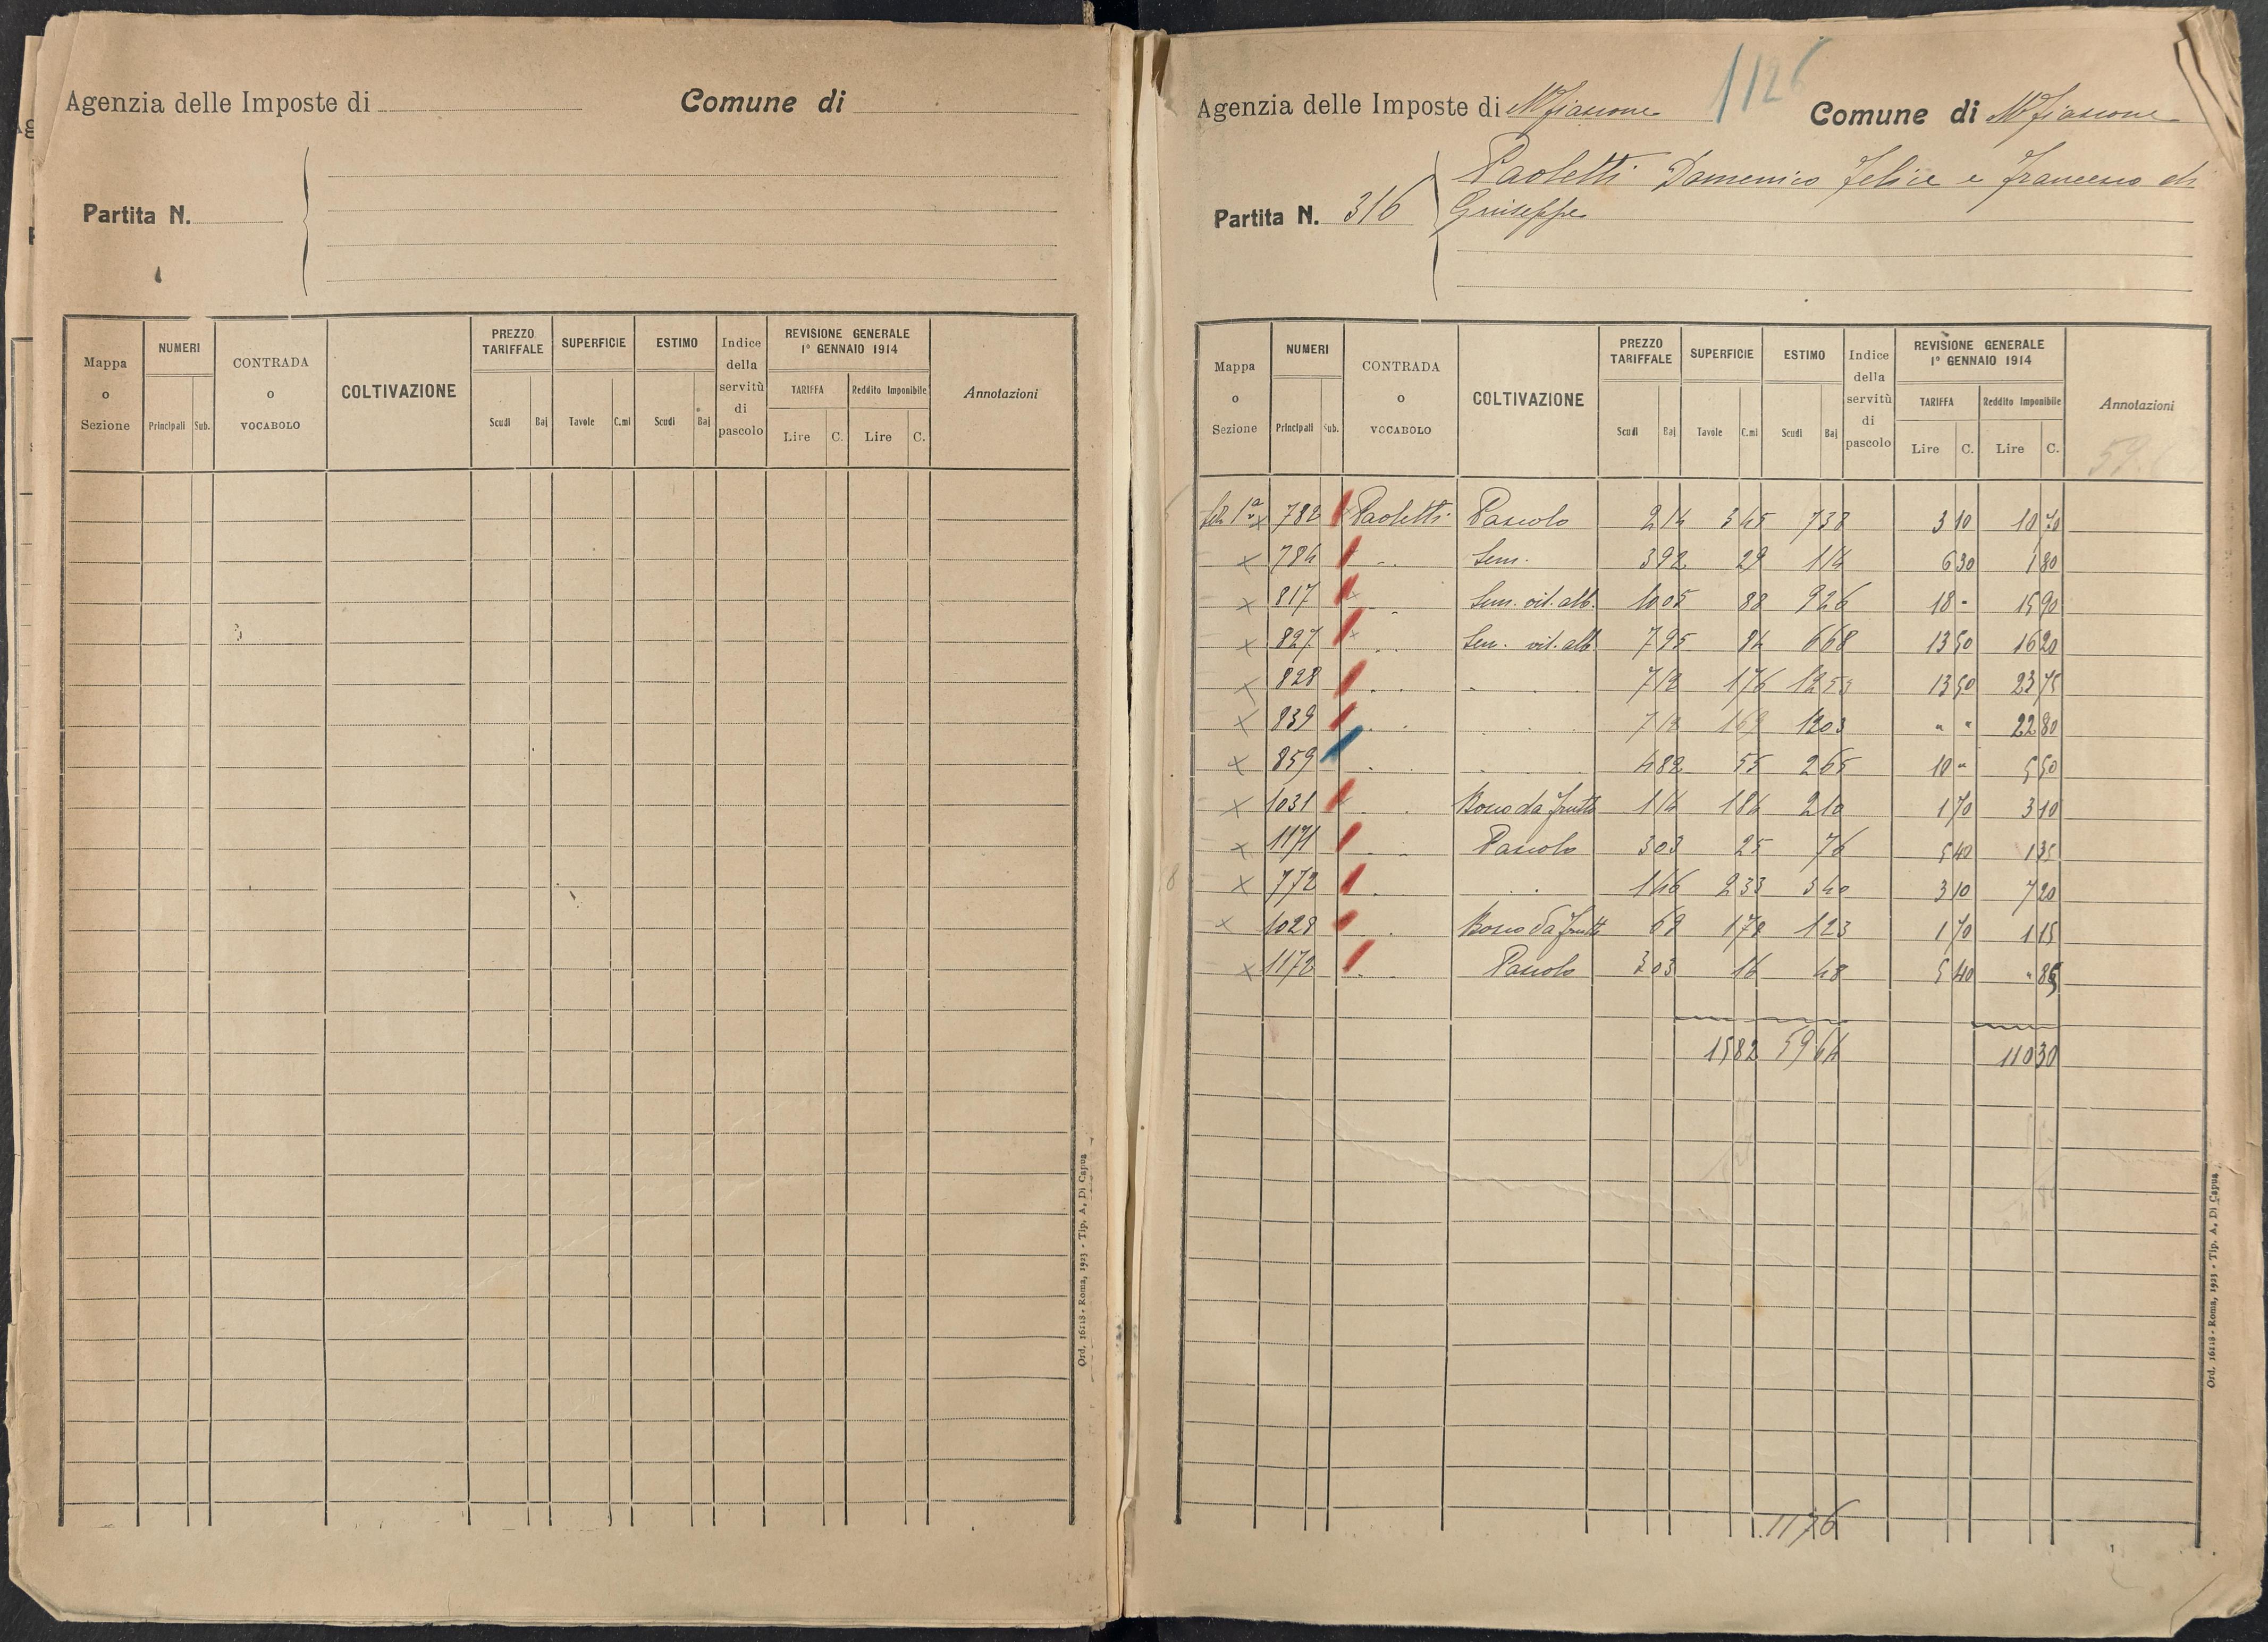 Agenzia delle Imposte di
Comune di
Partita N.
Mappa o Sezione
NUMERI
Principali Sub.
CONTRADA o VOCABOLO
COLTIVAZIONE
PREZZO TARIFFALE
Scudi Baj
SUPERFICIE
Tavole C.mi
ESTIMO
Scudi Baj
Indice della servitù di pascolo
REVISIONE GENERALE
1° GENNAIO 1914
TARIFFA Reddito Imponibile
Lire C. Lire C.
Annotazioni
Ord. 16118 - Roma, 1923 - Tip. A. Di Capua
1126
Agenzia delle Imposte di Mfiascone Comune di Mfiascone
Paoletti Domenico Felice e Francesco di
Partita N. 316 Giuseppe
Mappa o Sezione
NUMERI
Principali Sub.
CONTRADA o VOCABOLO
COLTIVAZIONE
PREZZO TARIFFALE
Scudi Baj
SUPERFICIE
Tavole C.mi
ESTIMO
Scudi Baj
Indice della servitù di pascolo
REVISIONE GENERALE
1° GENNAIO 1914
TARIFFA Reddito Imponibile
Lire C. Lire C.
Annotazioni
1ª x 782 Paoletti Pascolo 2 14 345 7 38 3 10 10 70
x 784 Sem. 3 92 29 1 14 6 30 1 80
x 817 Sem. vit. alb. 10 05 88 9 26 18 - 15 90
x 827 Sem. vit. alb. 7 95 84 6 68 13 50 16 20
x 828 7 12 176 12 53 13 50 23 75
x 839 7 12 169 12 03 " " 22 80
x 859 4 82 55 2 65 10 - 5 50
x 1031 Bosco da frutto 1 14 184 2 10 1 70 3 10
x 1171 Pascolo 3 03 25 76 5 40 1 35
x 772 1 46 233 3 40 3 10 7 20
x 1028 Bosco da frutto 69 178 1 23 1 70 1 15
x 1172 Pascolo 3 03 16 48 5 40 " 85
1582 59 64 110 30
1176
Ord. 16118 - Roma, 1923 - Tip. A. Di Capua